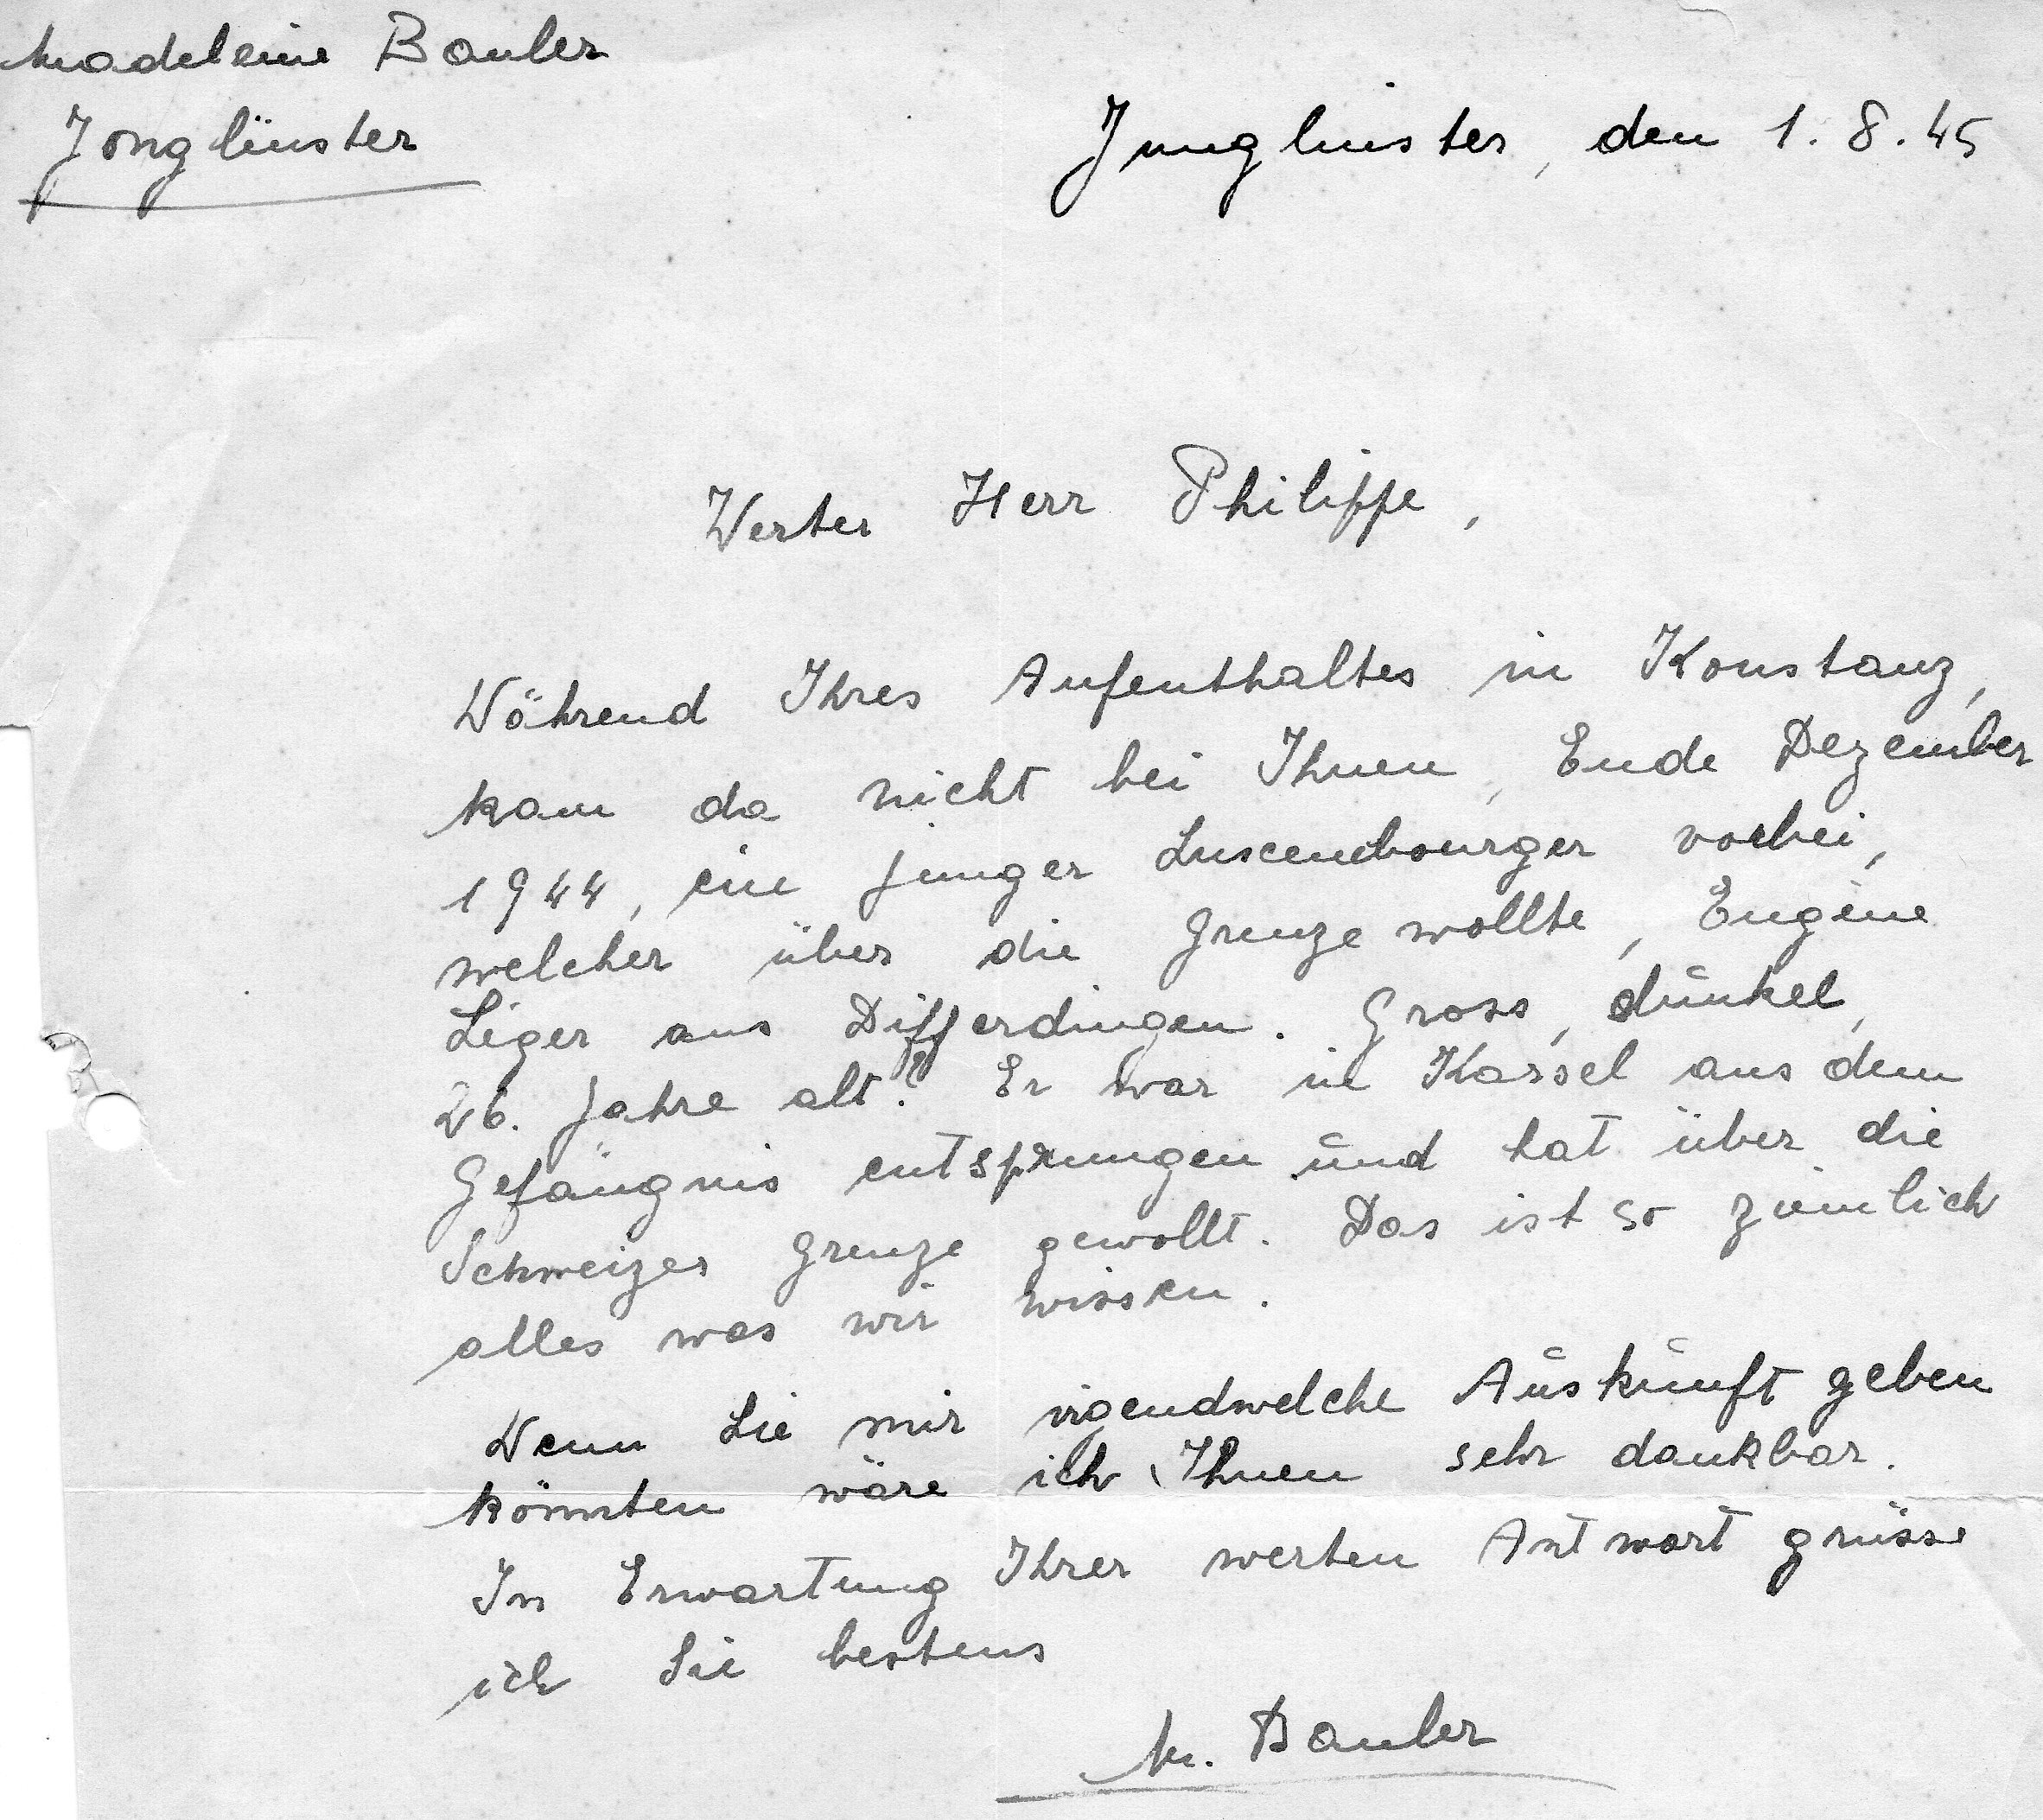 Madeleine Bauler
Jonglinster
Junglinster, den 1.8.45
Werter Herr Philippe,
Während Ihres Aufenthaltes in Konstanz,
kam da nicht bei Ihnen, Ende Dezember
1944, ein junger Luxembourger vorbei,
welcher über die Grenze wollte, Eugène
Léger aus Differdingen. Gross, dunkel,
26. Jahre alt? Er war in Kassel aus dem
Gefängnis entsprungen und hat über die
Schweizer Grenze gewollt. Das ist so ziemlich
alles was wir wissen.
Wenn Sie mir irgendwelche Auskunft geben
könnten wäre ich Ihnen sehr dankbar.
In Erwartung Ihrer werten Antwort grüsse
ich Sie bestens
M. Bauler